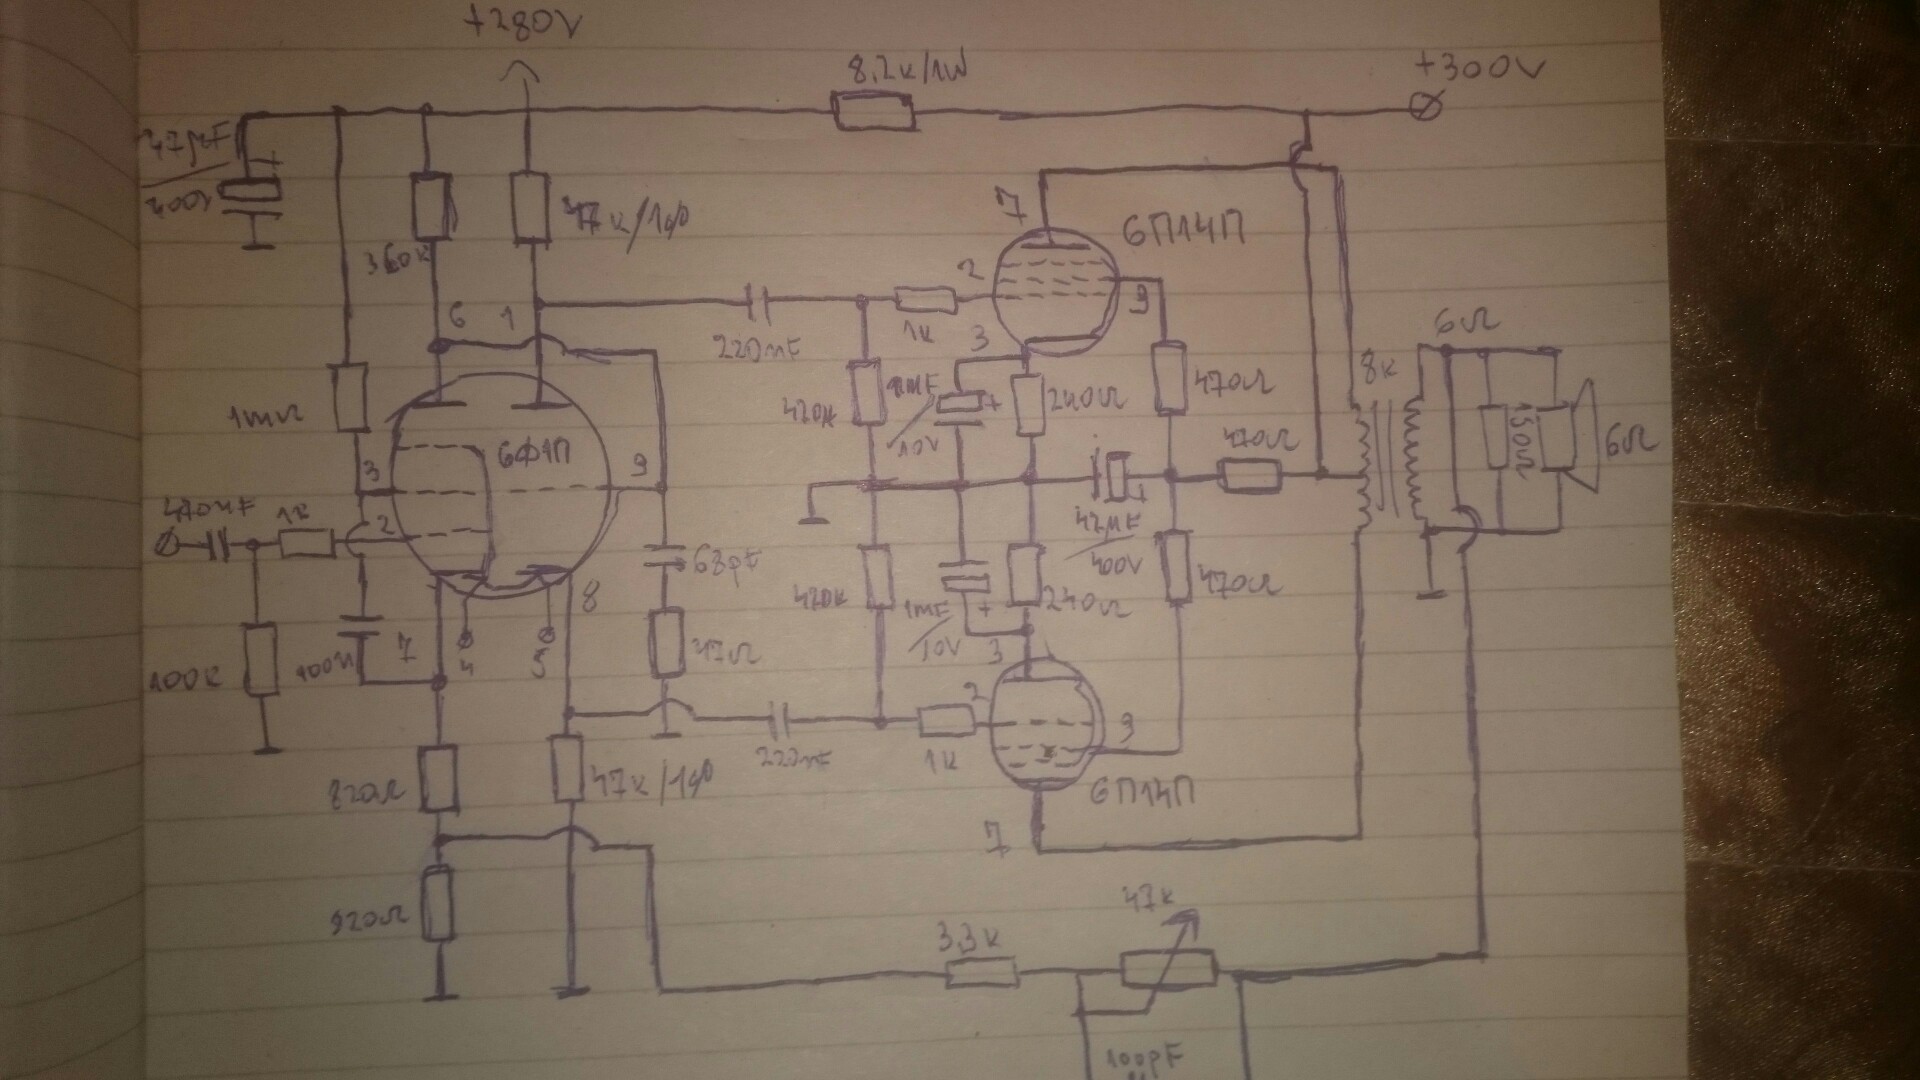 +280V
8.2k/1W
+300V
47μF
400V
360k
47k/1%
7
6П14П
2
9
6
1
220nF
1k
3
470k
1MF
10V
240Ω
470Ω
8k
6Ω
150Ω
6Ω
1MΩ
6Ф1П
3
9
470Ω
470nF
1k
2
47MF
400V
68pF
470k
1MF
10V
240Ω
470Ω
8
100k
100n
7
4
5
47Ω
3
2
9
220nF
1k
820Ω
47k/1%
6П14П
7
820Ω
3.3k
47k
100pF